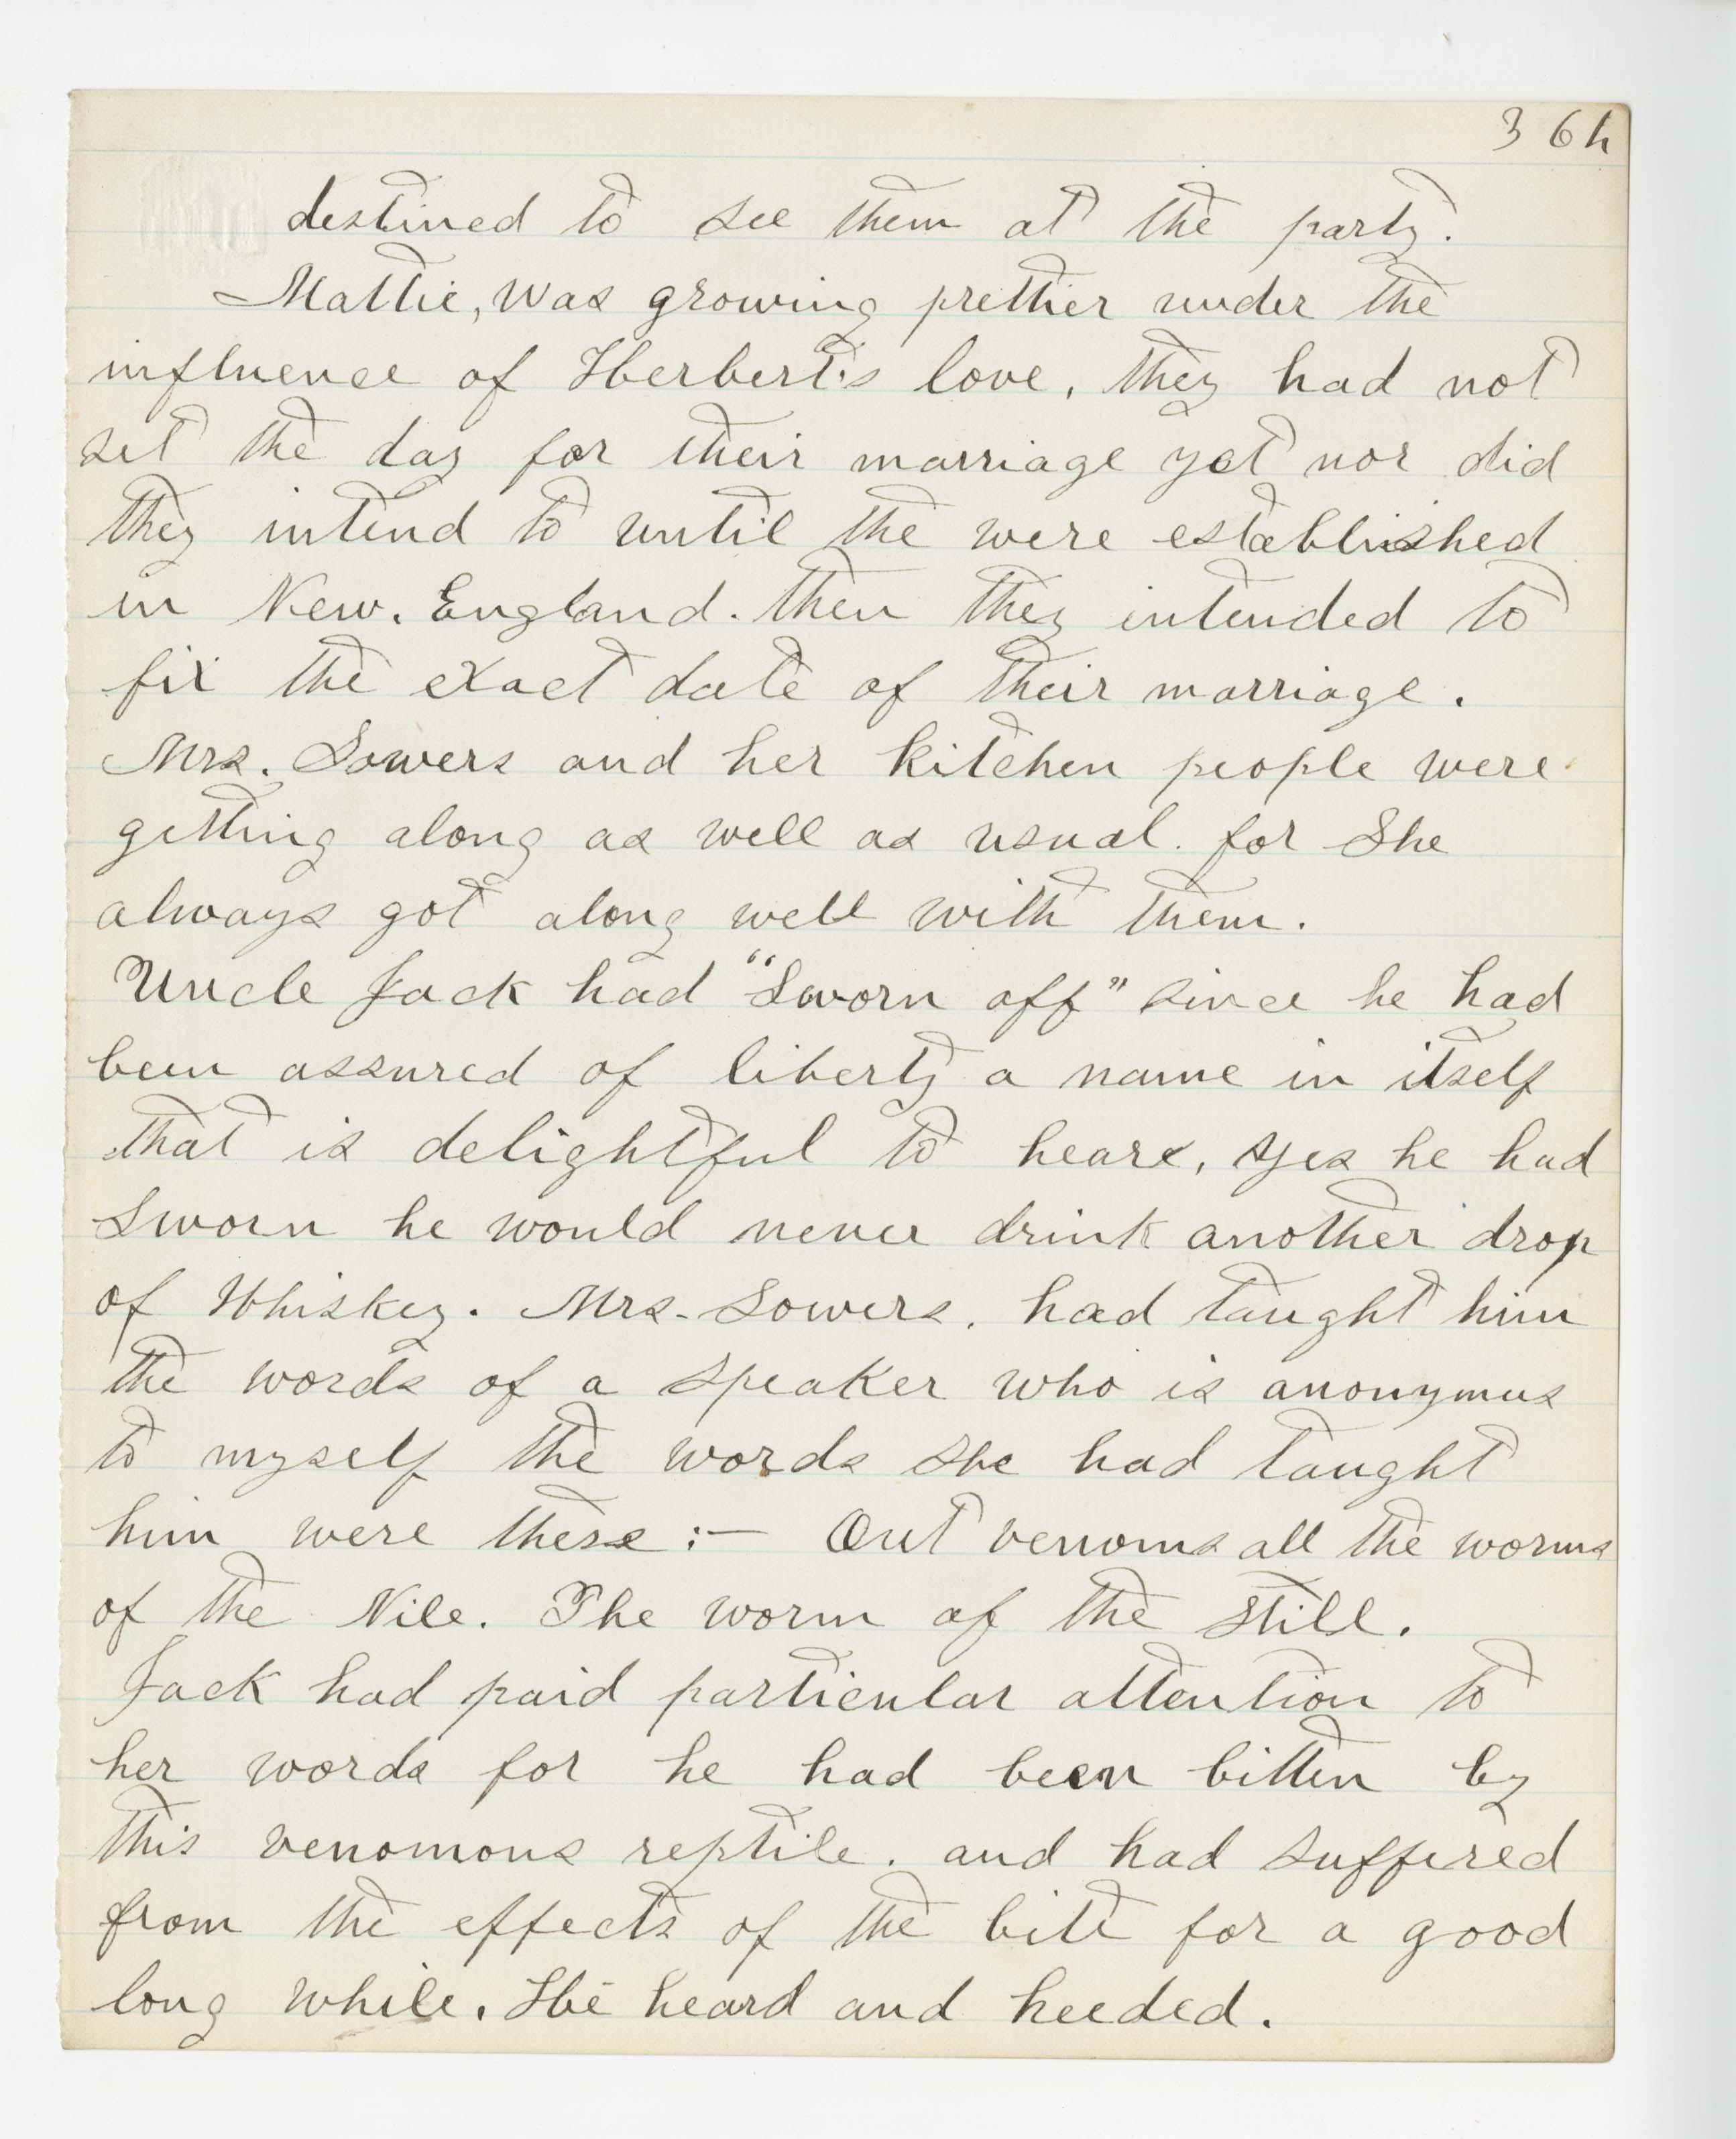 364
destined to see them at the party.
Mattie, was growing prettier under the
influence of Herbert's love, they had not
set the day for their marriage yet nor did
they intend to until the were established
in New. England. then they intended to
fix the exact date of their marriage.
Mrs. Sowers and her kitchen people were
getting along as well as usual. for She
always got along well with them.
Uncle Jack had "Sworn off" since he had
been assured of liberty a name in itself
that is delightful to hear, yes he had
Sworn he would never drink another drop
of Whiskey. Mrs. Sowers. had taught him
the words of a speaker who is anonymus
to myself the words she had taught
him were these :— Out venoms all the worms
of the Nile. The worm of the still.
Jack had paid particular attention to
her words for he had been bitten by
this venomous reptile. and had suffered
from the effects of the bite for a good
long while. He heard and heeded.